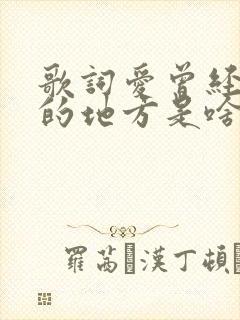 歌詞愛曾經
的地方是啥
羅茜·漢丁頓·